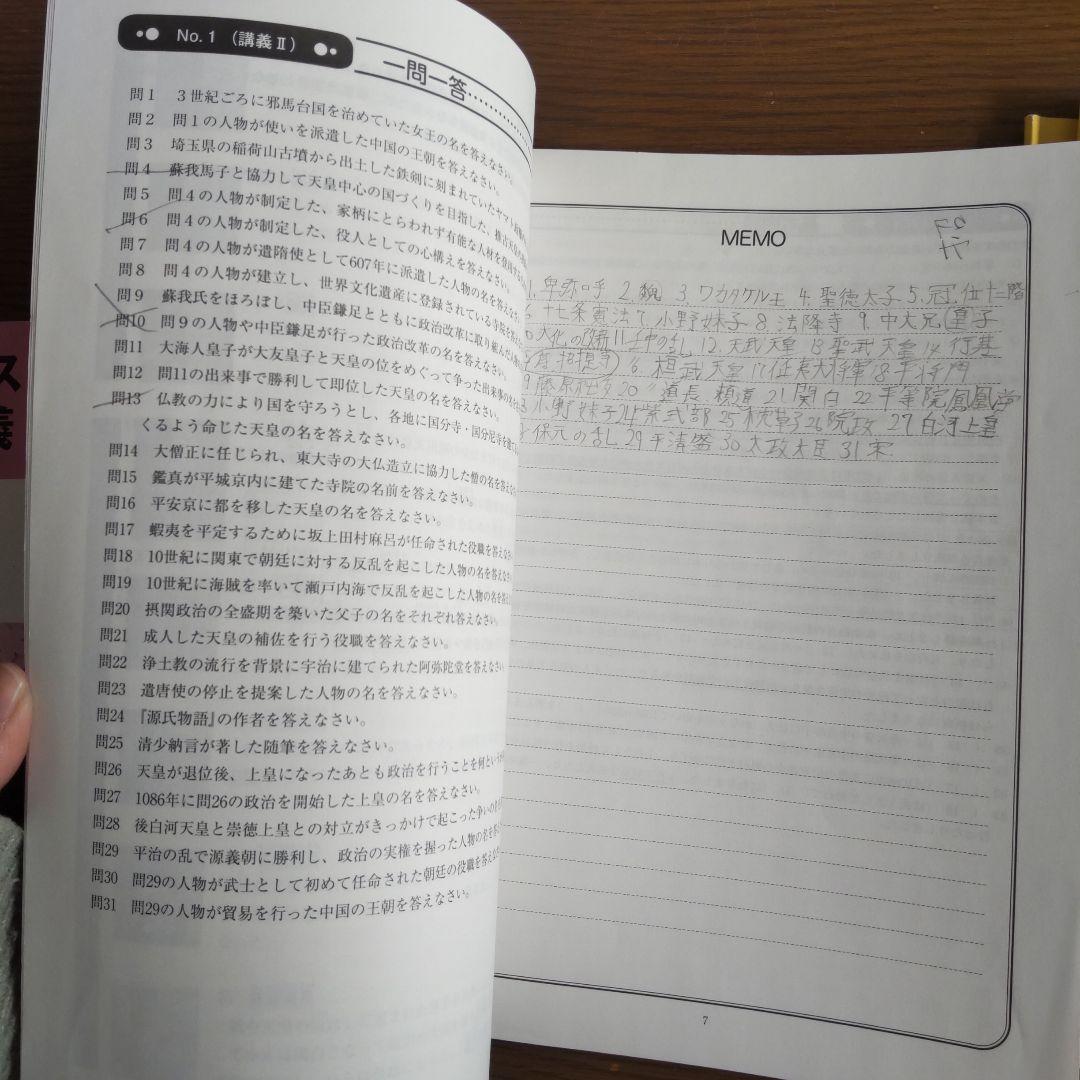 No.1 (講義Ⅱ)
一問一答
問1 3世紀ごろに邪馬台国を治めていた女王の名を答えなさい。
問2 問1の人物が使いを派遣した中国の王朝を答えなさい。
問3 埼玉県の稲荷山古墳から出土した鉄剣に刻まれていたヤマト
問4 蘇我馬子と協力して天皇中心の国づくりを目指した、推古天皇の
問5 問4の人物が制定した、家柄にとらわれず有能な人材を登用する
問6 問4の人物が制定した、役人としての心構えを答えなさい。
問7 問4の人物が遣隋使として607年に派遣した人物の名を答えなさい。
問8 問4の人物が建立し、世界文化遺産に登録されている寺院を答え
問9 蘇我氏をほろぼし、中臣鎌足とともに政治改革に取り組んだ
問10 問9の人物や中臣鎌足が行った政治改革の名を答えなさい。
問11 大海人皇子が大友皇子と天皇の位をめぐって争った出来事の名を
問12 問11の出来事で勝利して即位した天皇の名を答えなさい。
問13 仏教の力により国を守ろうとし、各地に国分寺・国分尼寺を建て
くるよう命じた天皇の名を答えなさい。
問14 大僧正に任じられ、東大寺の大仏造立に協力した僧の名を答えなさい。
問15 鑑真が平城京内に建てた寺院の名前を答えなさい。
問16 平安京に都を移した天皇の名を答えなさい。
問17 蝦夷を平定するために坂上田村麻呂が任命された役職を答えなさい
問18 10世紀に関東で朝廷に対する反乱を起こした人物の名を答えなさい
問19 10世紀に海賊を率いて瀬戸内海で反乱を起こした人物の名を答えなさい
問20 摂関政治の全盛期を築いた父子の名をそれぞれ答えなさい。
問21 成人した天皇の補佐を行う役職を答えなさい。
問22 浄土教の流行を背景に宇治に建てられた阿弥陀堂を答えなさい
問23 遣唐使の停止を提案した人物の名を答えなさい。
問24 『源氏物語』の作者を答えなさい。
問25 清少納言が著した随筆を答えなさい。
問26 天皇が退位後、上皇になったあとも政治を行うことを何という
問27 1086年に問26の政治を開始した上皇の名を答えなさい。
問28 後白河天皇と崇徳上皇との対立がきっかけで起こった争いの
問29 平治の乱で源義朝に勝利し、政治の実権を握った人物の名を答え
問30 問29の人物が武士として初めて任命された朝廷の役職を答えな
問31 問29の人物が貿易を行った中国の王朝を答えなさい。
MEMO
1.卑弥呼 2.魏 3.ワカタケル王 4.聖徳太子 5.冠位十二階
十七条憲法 7.小野妹子 8.法隆寺 9.中大兄皇子
大化の改新 11.壬申の乱 12.天武天皇 13聖武天皇 14行基
唐招提寺 6.桓武天皇 17征夷大将軍 18平将門
9藤原純友 20 〃道長 頼道 21関白 22平等院鳳凰堂
3小野妹子 24紫式部 25枕草子 26院政 27白河上皇
保元の乱 29平清盛 30太政大臣 31宋
7